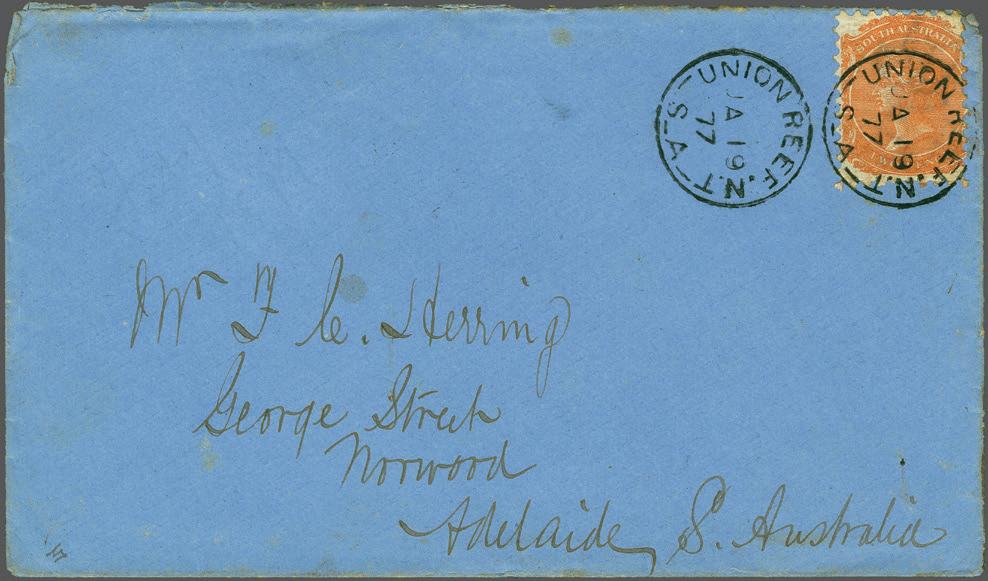 UNION REEF. N.T.
S-A
JA 19
77
SOUTH AUSTRALIA
UNION REEF. N.T.
S-A
JA 19
77
Mr F C. Herring
George Street
Norwood
Adelaide, S. Australia